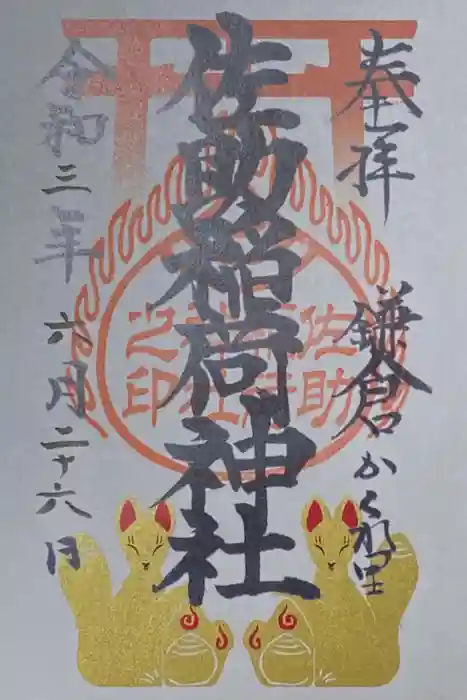 奉拝
鎌倉かくれ里
佐助稲荷神社
令和三年
六月二十八日
佐助
稲荷
神社
之印